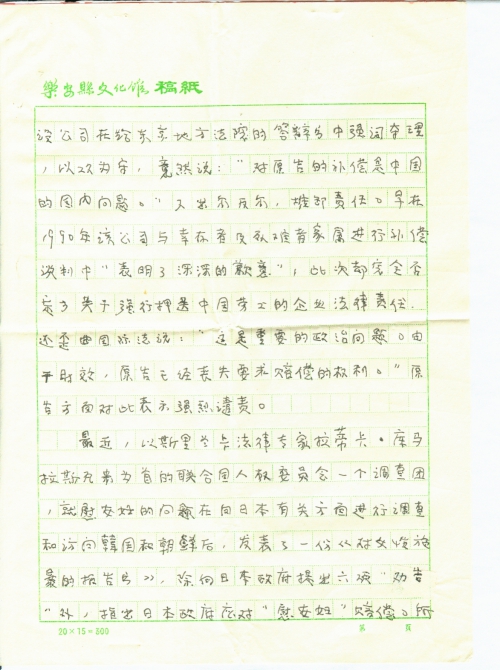 樂安縣文化馆 稿紙
该公司在给东京地方法院的答辩书中强词夺理
，以攻为守，竟然说："对原告的补偿是中国
的国内问题。"又出尔反尔，推卸责任。早在
1990年该公司与幸存者及死难者家属进行补偿
谈判中"表明了深深的歉意"，此次却完全否
定了关于强行押送中国劳工的企业法律责任.
还歪曲国际法说："这是重要的政治问题。由
于时效，原告已经丧失要求赔偿的权利。"原
告方面对此表示强烈谴责。
最近，以斯里兰卡法律专家拉蒂卡·库马
拉斯瓦弗为首的联合国人权委员会一个调查团
，就慰安妇的问题在向日本有关方面进行调查
和访问韓国和朝鮮后，发表了一份《对女性施
暴的报告书》，除向日本政府提出六项"劝告
"外，指出日本政府应对"慰安妇"赔偿。所
20×15=300
第 页